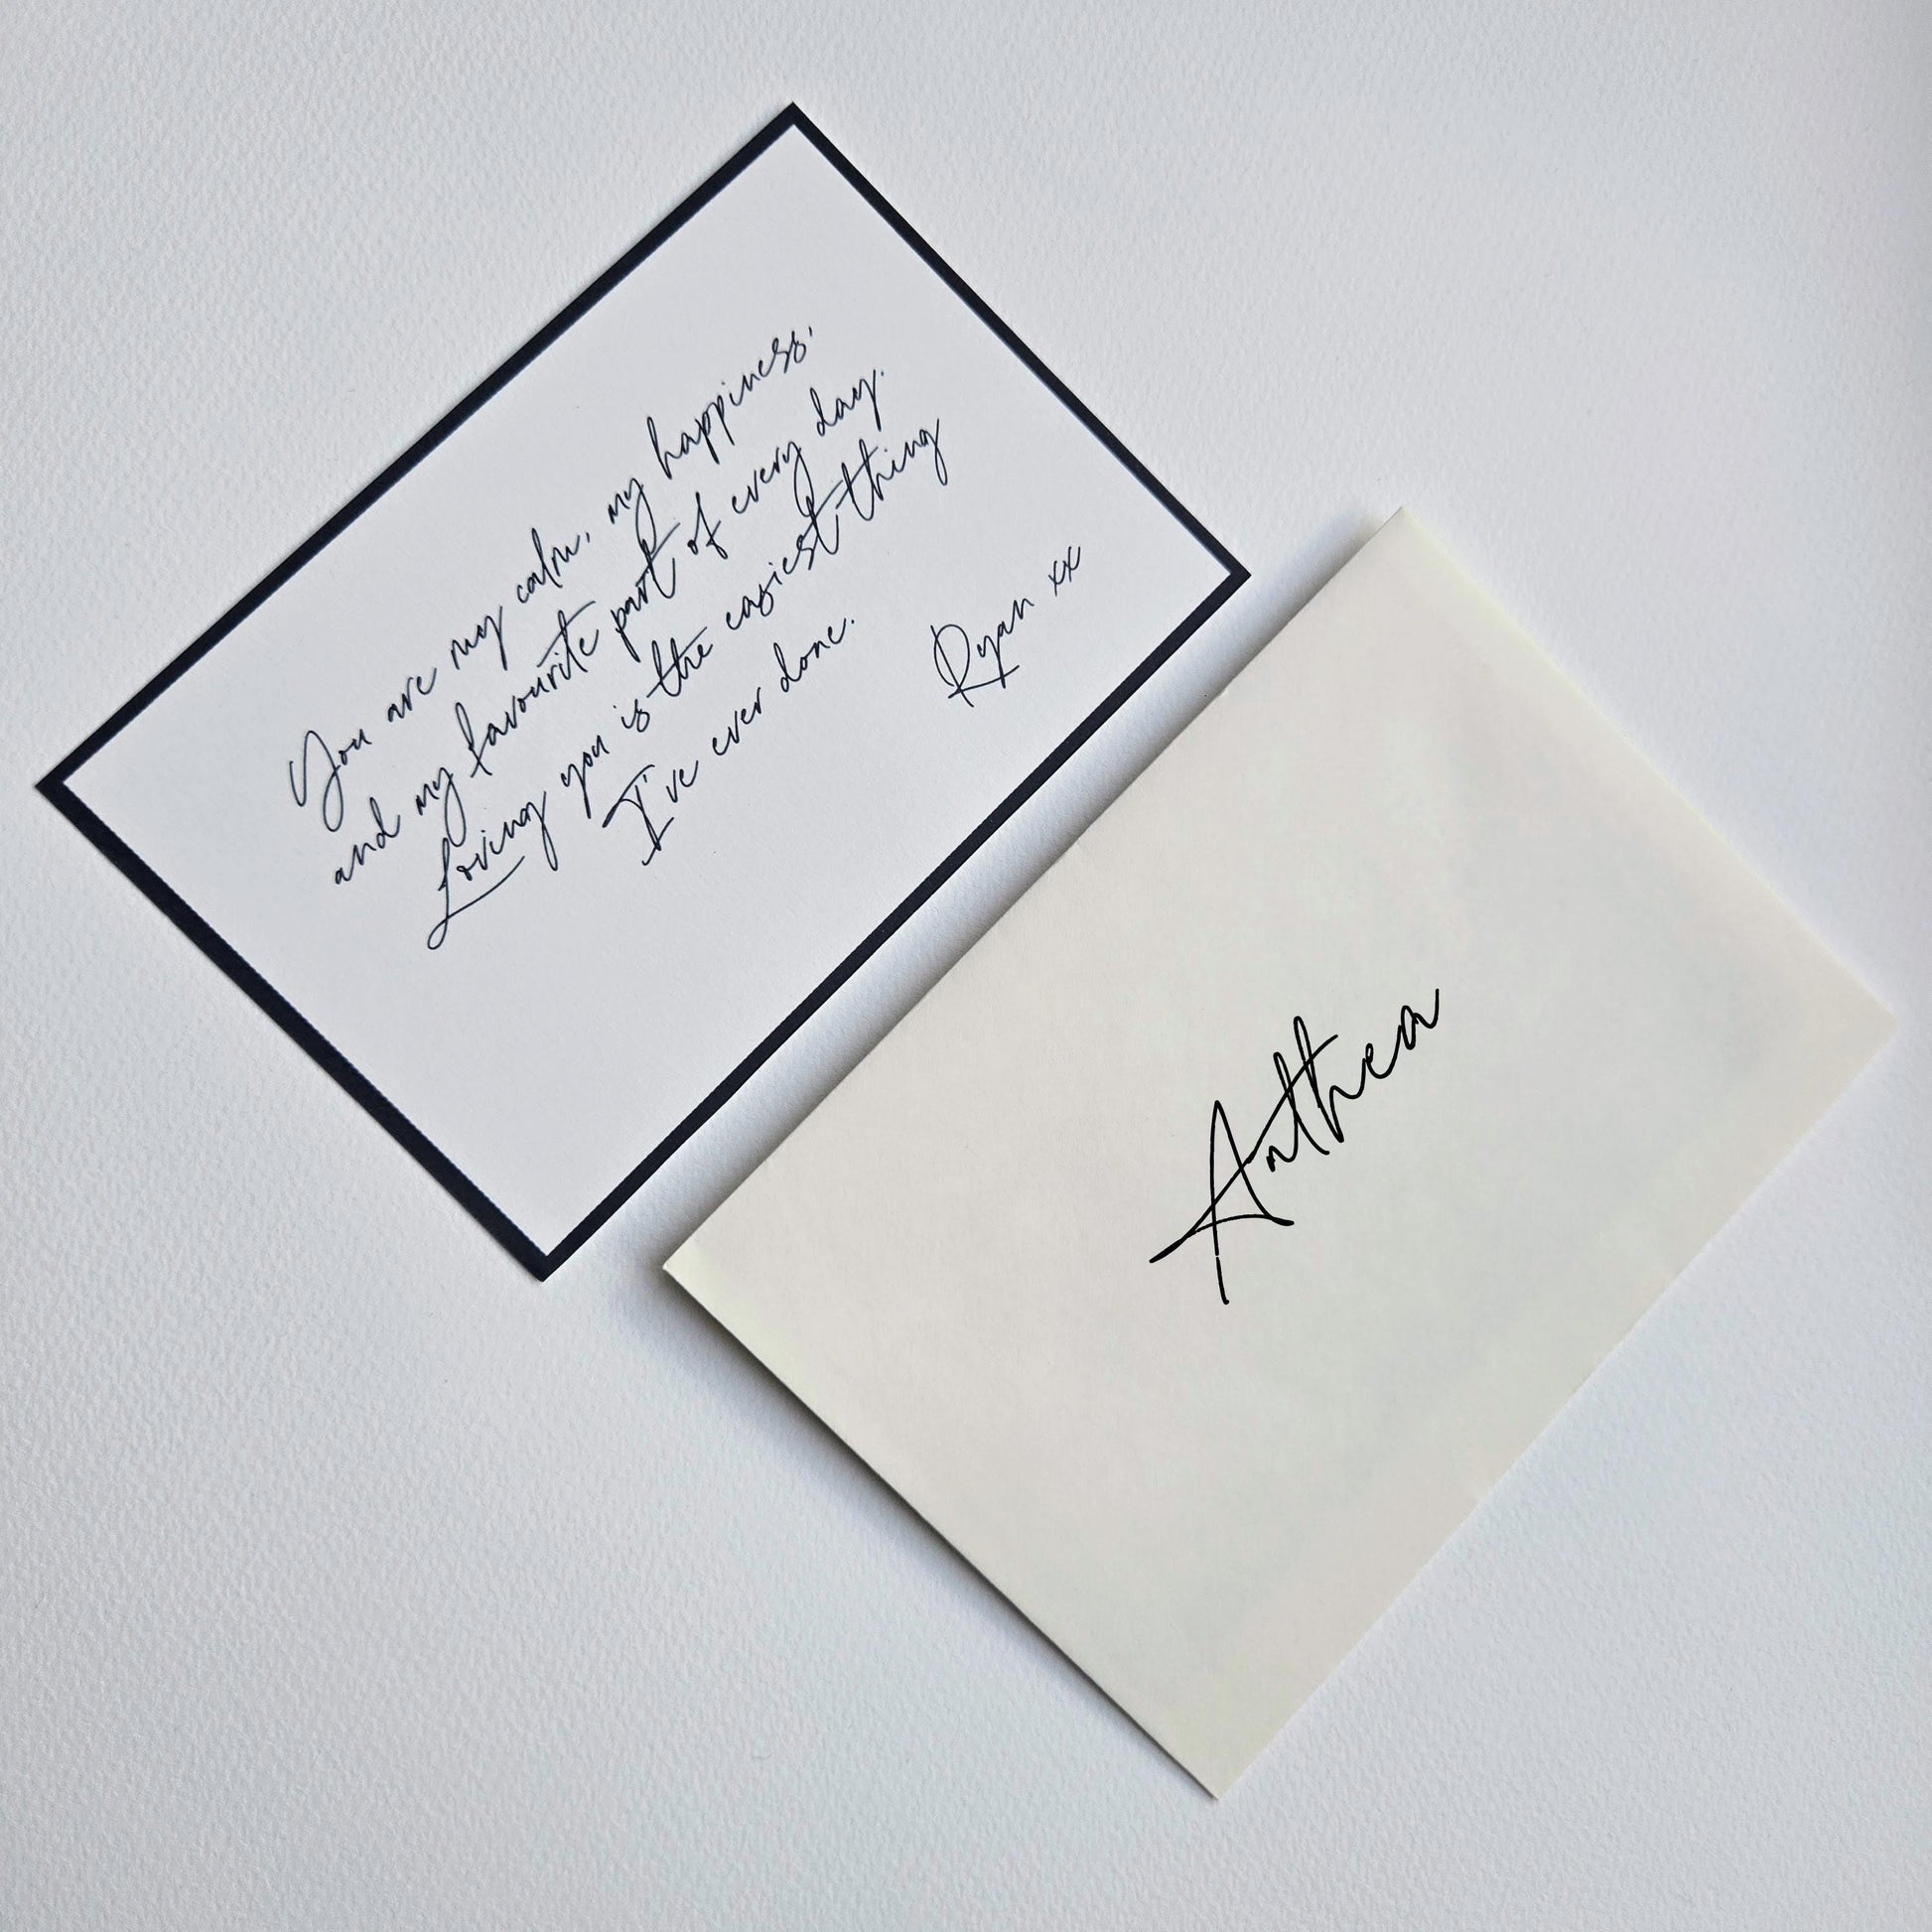 You are my calm, my happiness,
and my favourite part of every day.
Loving you is the easiest thing
I've ever done.
Ryan xx
Anthea